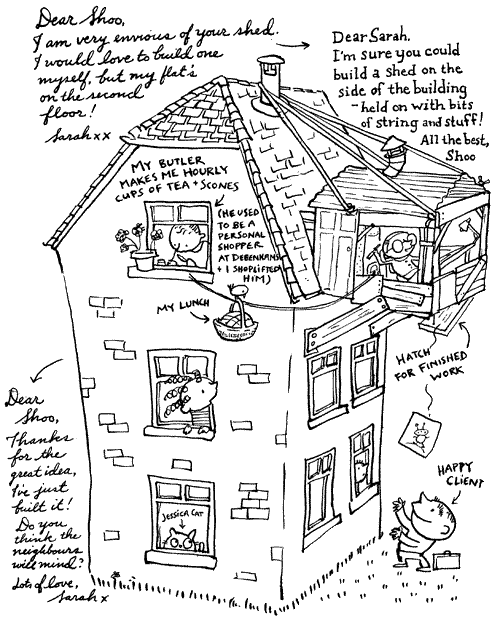 Dear Shoo,
I am very envious of your shed.
I would love to build one
myself, but my flat's
on the second
floor!
Sarah xx
Dear Sarah,
I'm sure you could
build a shed on the
side of the building
- held on with bits
of string and stuff!
All the best,
Shoo
MY BUTLER
MAKES ME HOURLY
CUPS OF TEA + SCONES
(HE USED
TO BE A
PERSONAL
SHOPPER
AT DEBENHAMS
+ I SHOPLIFTED
HIM)
MY LUNCH
HATCH
FOR FINISHED
WORK
HAPPY
CLIENT
JESSICA CAT
Dear
Shoo,
Thanks
for the
great idea,
I've just
built it!
Do you
think the
neighbours
will mind?
Lots of love,
Sarah x